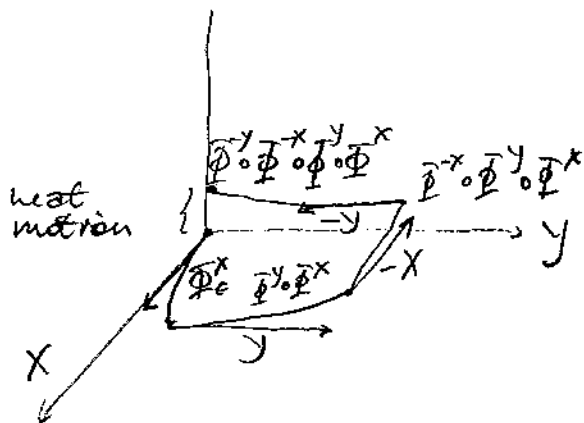 Φ^-y ∘ Φ^-x ∘ Φ^y ∘ Φ^x
Φ^-x ∘ Φ^y ∘ Φ^x
neat
motion
-y
y
-X
Φ_ε^x
Φ^y ∘ Φ^x
y
X